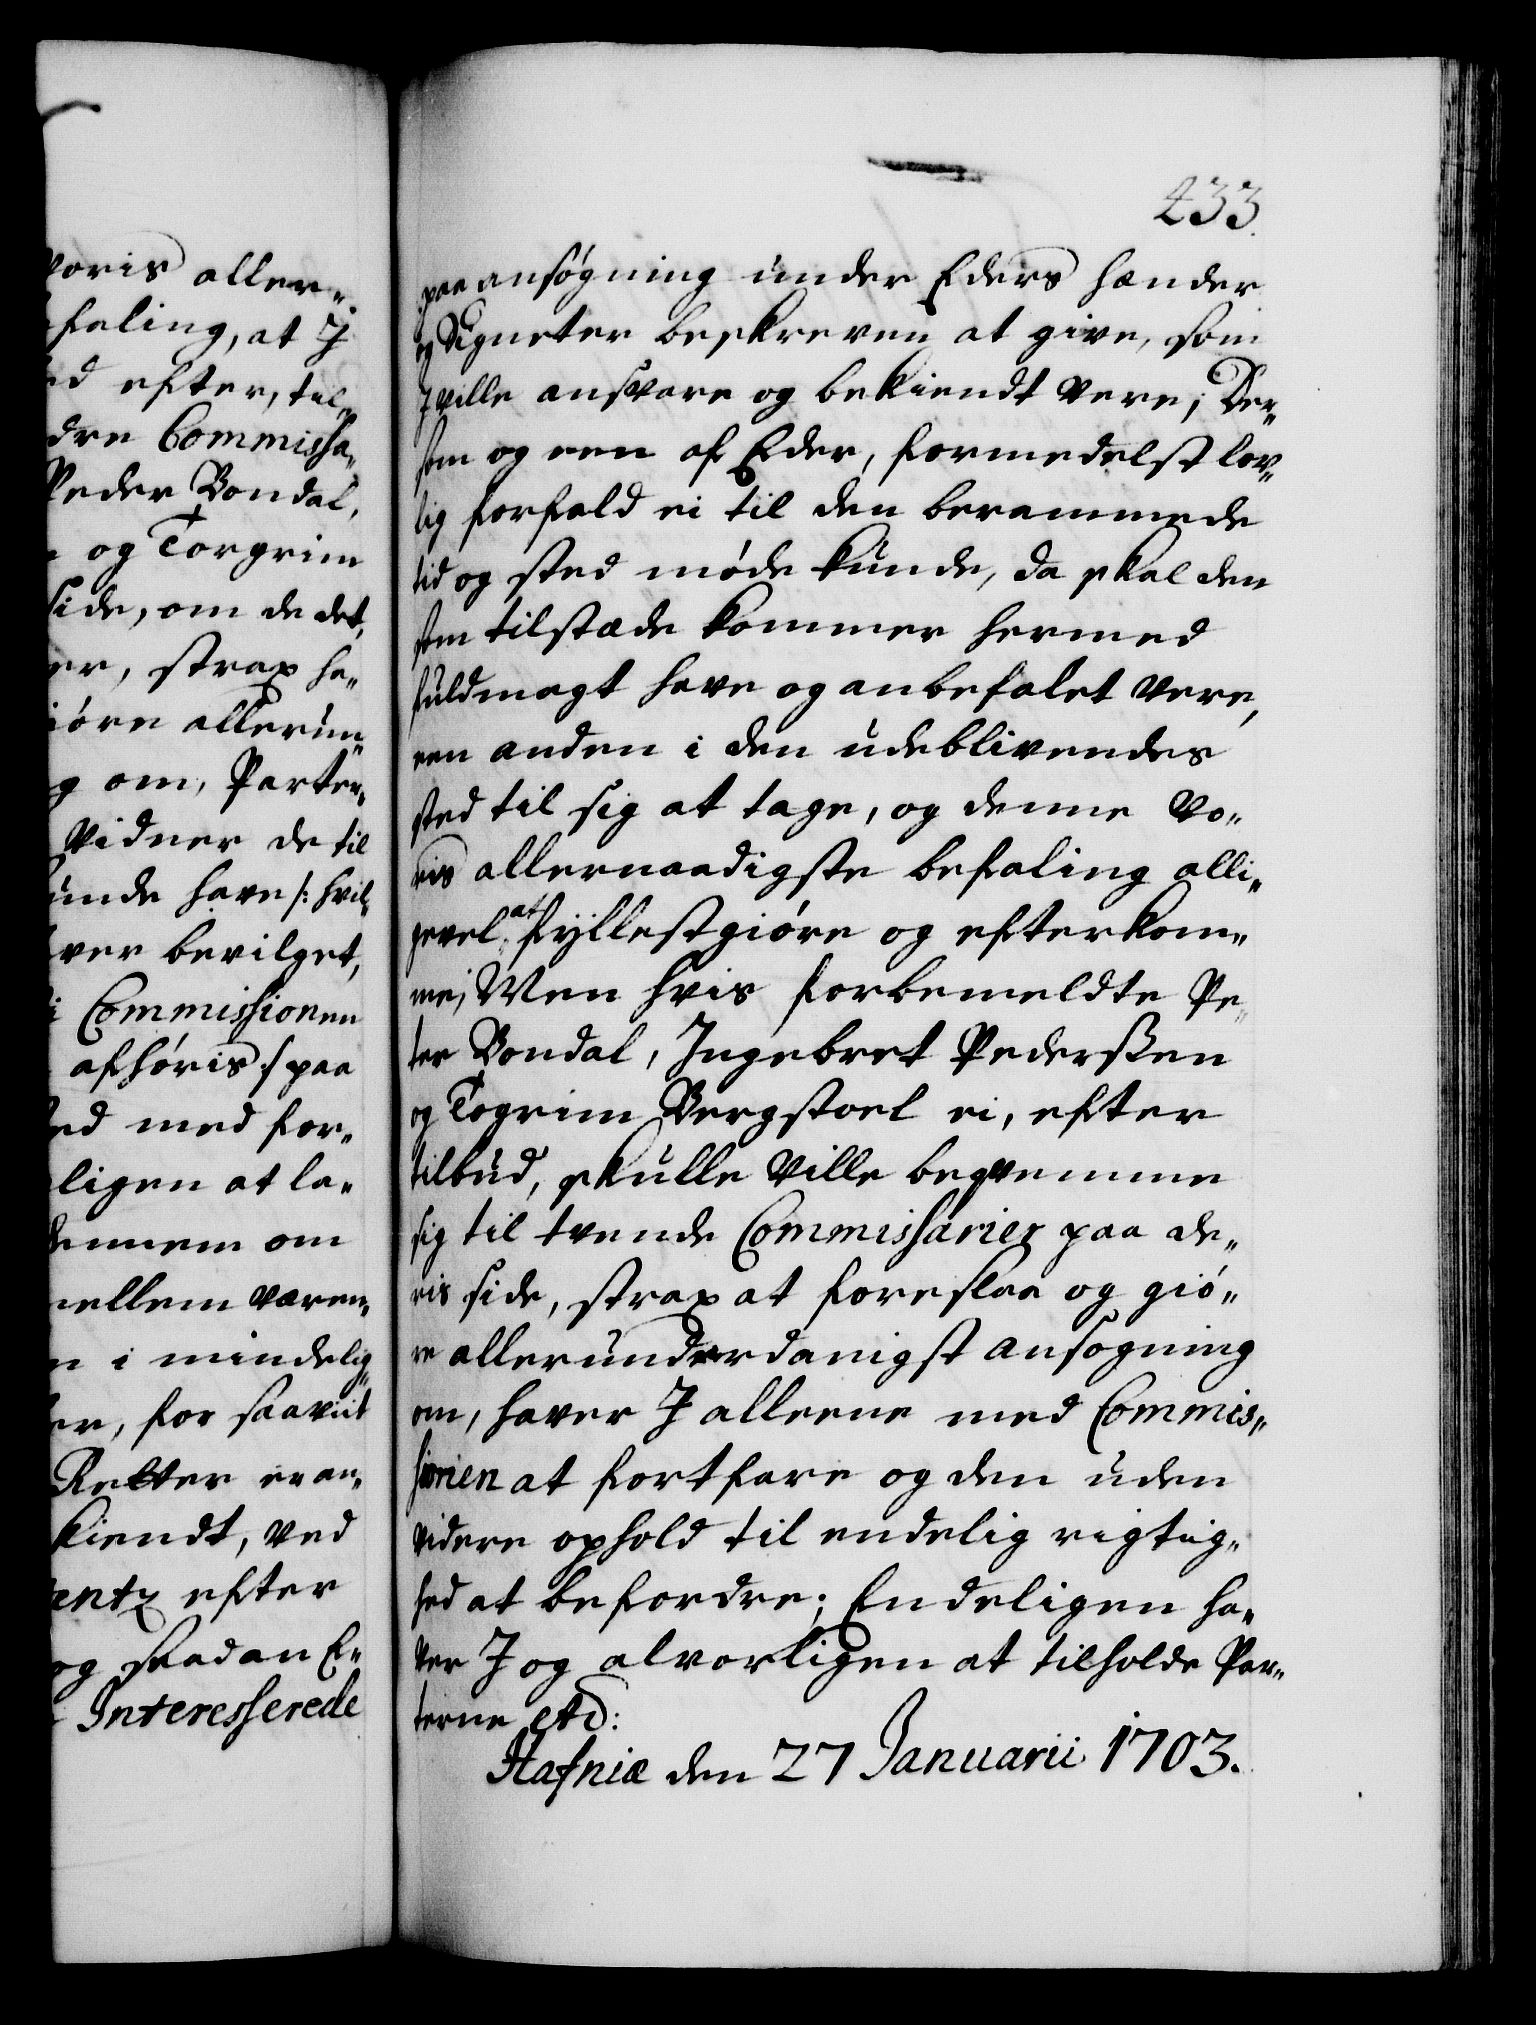 voris aller„
faling, at I
ed efter, til„
dre Commissa„
Peder Bondal,
og Torgrim
side, om de det,
er, strax ha„
iöre allerun„
g om, Parter„
Vidner de til
unde have /: hvil„
ver bevilget,
i Commissionen
afhöris :/ paa
ed med for„
ligen at la„
dennem om
mellem væren„
n i mindelig„
er, for saavit
Retter er an„
kiendt, ved
tentz efter
og saadan E„
Interesserede
433.
paa ansögning under Eders hænder
og Signeter beskreven at give, som
I ville ansvare og bekiendt vere; Der„
som og een af Eder, formedelst lov„
lig forfald ei til den berammede
tid og sted möde kunde, da skal den
som tilstæde kommer hermed
fuldmagt have og anbefalet vere,
een anden i den udeblivendes
sted til sig at tage, og denne Vo„
ris allernaadigste befaling alli„
gevel at fyllestgiöre og efterkom„
me; Men hvis forbemeldte Pe„
ter Bondal, Ingebret Pederssen
og Togrim Bergstoel ei, efter
tilbud, skulle ville beqvemme
sig til tvende Commissarier paa de„
ris side, strax at foreslaa og giö„
re allerunderdanigst ansögning
om, haver I alleene med Commis„
sionen at fortfare og den uden
videre ophold til endelig rigtig„
hed at befordre; Endeligen ha„
ver I og alvorligen at tilholde Par„
terne etc:
Hafniæ den 27 Januarii 1703.